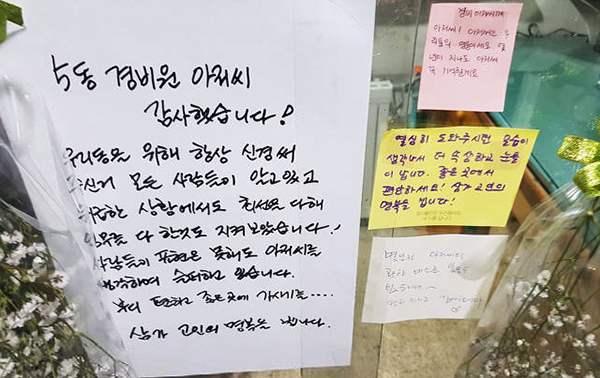 5동 경비원 아저씨
감사했습니다!
우리동을 위해 항상 신경써
주신거 모든 사람들이 알고있고
위급한 상황에서도 최선을 다해
임무를 다 한것도 지켜보았습니다!
사람들이 표현은 못해도 아저씨를
생각하며 슬퍼하고 있습니다.
부디 편하고 좋은곳에 가시기를....
삼가 고인의 명복을 빕니다.
경비 아저씨께
아저씨! 아저씨는 우
리들의 영웅이세요 몇
년이 지나도 아저씨
꼭 기억할게요
열심히 도와주시던 모습이
생각나서 더 속상하고 눈물
이 납니다. 좋은곳에서
편안하세요! 삼가 고인의
명복을 빕니다!
아저씨의